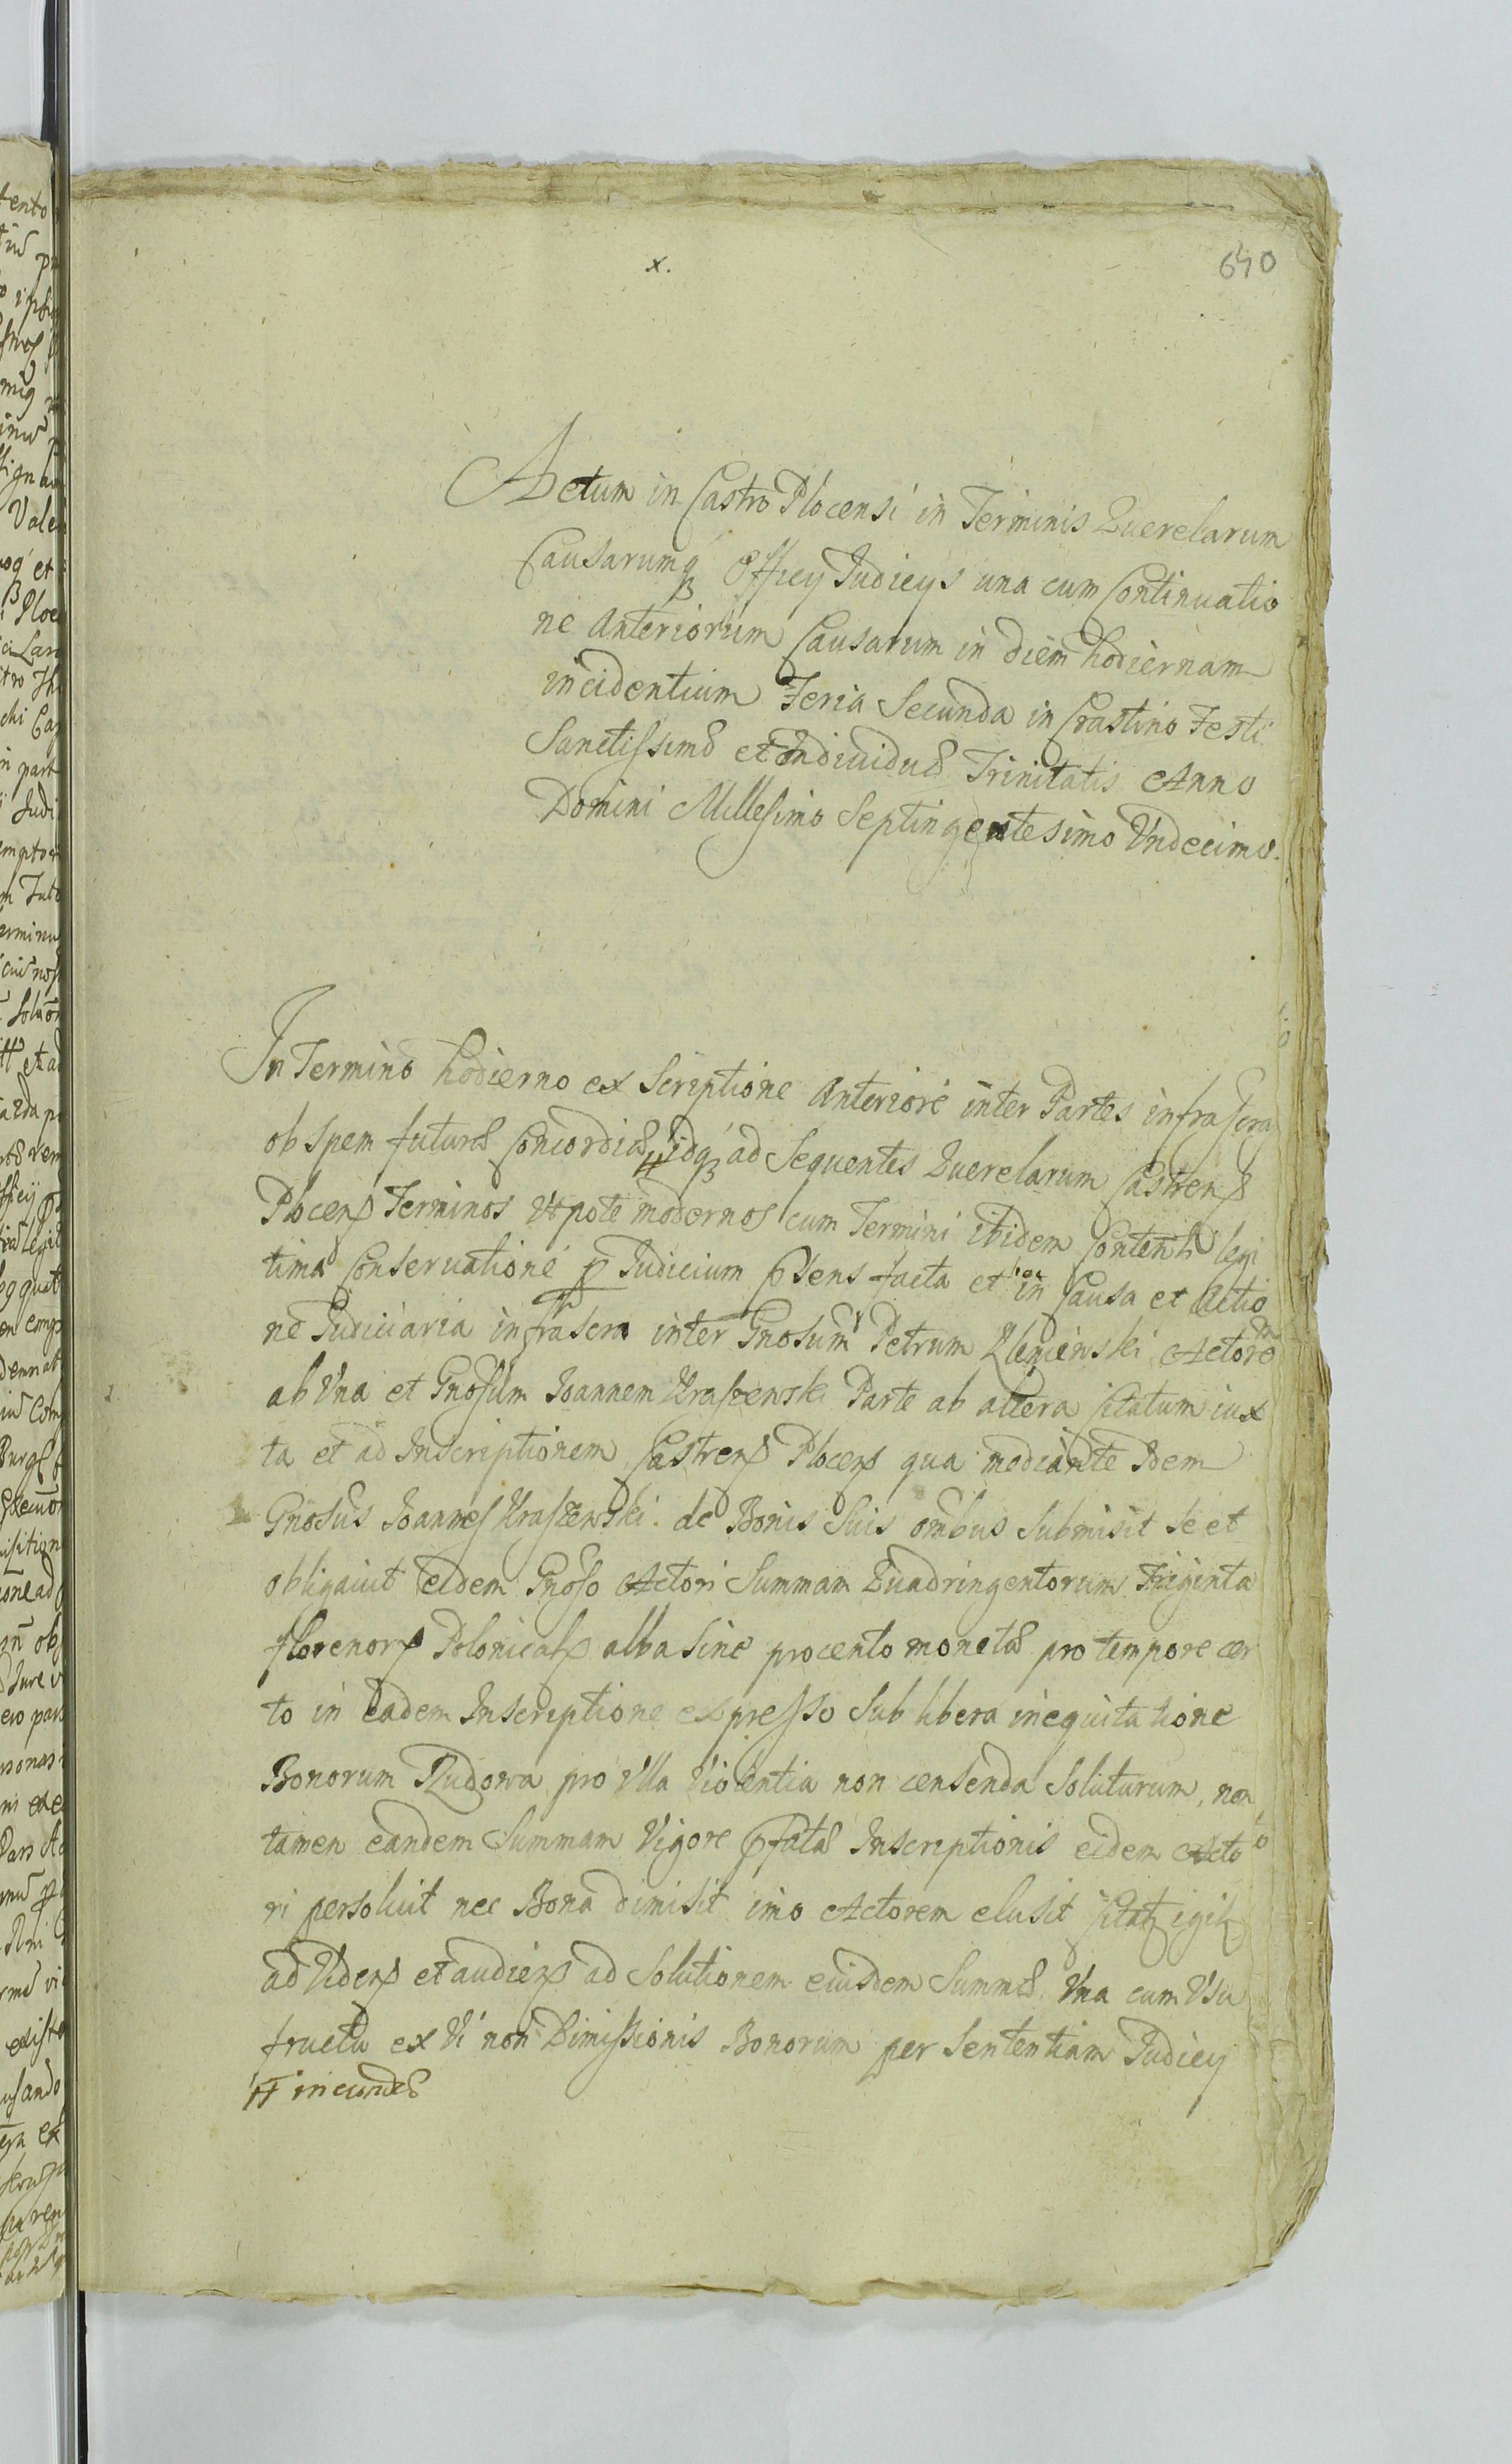 x.
640
Actum in Castro Plocensi in Terminis Querelarum
Causarumq Officij Judicijs una cum Continuatio
ne Anteriorum Causarum in diem hodiernam
incidentium Feria Secunda in Crastino Festi
Sanctissimæ et Individuæ Trinitatis Anno
Domini Millesimo Septingentesimo Undecimo.
In Termino hodierno ex Scriptione Anteriori inter Partes infrascra
ob spem futuræ Concordiæ # idq ad Sequentes Querelarum Castrens
Plocens Terminos Utpote modernos cum Termini ibidem Contenti legi
tima Conservatione p Judicium pñs facta et in Causa et Actio
ne Judiciaria infrascra inter Gnosum Petrum Actorem
ab Una et Gnosum Joannem Kraszewski Parte ab altera Citatum iux
ta et ad Inscriptionem Castrens Plocens qua mediante Idem
Gnosus Joannes Kraszewski de Bonis Suis omibus Submisit Se et
obligavit eidem Gnoso Actori Summam Quadringentorum Triginta
florenor Polonical alba sine procento monetæ pro tempore cer
to in eadem Inscriptione expresso Sub libera inequitatione
Bonorum Rudowa pro Ulla Violentia non censenda Soluturum, non
tamen eandem Summam Vigore pfatæ Inscriptionis eidem Acto
ri persolvit nec Bona dimisit imo Actorem elusit Citat igit
ad Videns et audiens ad Solutionem eiusdem Summæ Una cum Usu
fructu ex Vi non Dimissionis Bonorum per Sententiam Judicij
# ineundæ